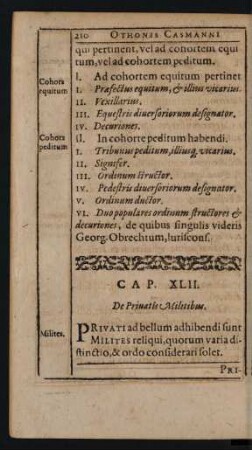 210 OTHONIS CASMANNI
qui pertinent, vel ad cohortem equi
tum, vel ad cohortem peditum.
Cohors equitum
I. Ad cohortem equitum pertinet
I. Præfectus equitum, & illius vicarius.
II. Vexillarius.
III. Equestris diuersoriorum designator.
IV. Decuriones.
Cohors peditum
II. In cohorte peditum habendi.
I. Tribunus peditum, illiusq; vicarius.
II. Signifer.
III. Ordinum structor.
IV. Pedestris diuersoriorum designator.
V. Ordinum ductor.
VI. Duo populares ordinum structores &
decuriones, de quibus singulis videris
Georg. Obrechtum, Iuriscons.
CAP. XLII.
De Privatis Militibus.
Milites.
PRIVATI ad bellum adhibendi sunt
MILITES reliqui, quorum varia di-
stinctio, & ordo considerari solet.
PRI-